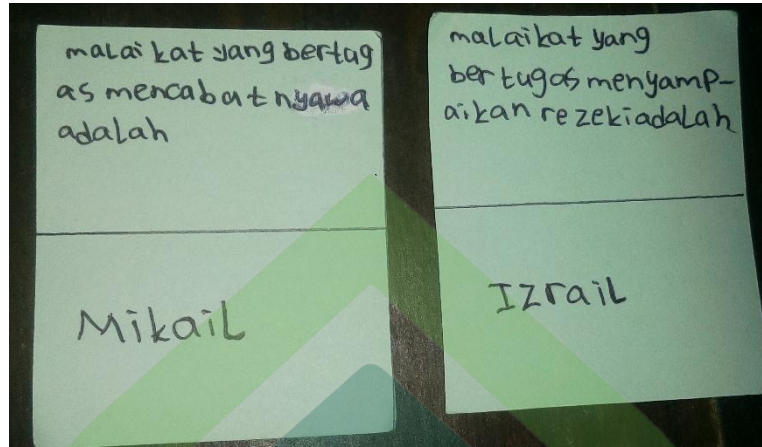 malaikat yang bertug
as mencabut nyawa
adalah
Mikail
malaikat yang
bertugas menyamp-
aikan rezekiadalah
Izrail